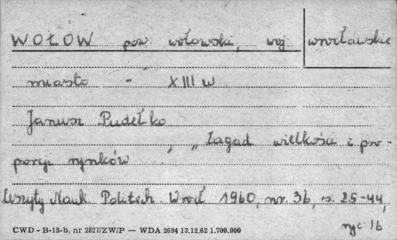 WOŁÓW pow. wołowski, woj. wrocławskie
miasto - XIII w
Janusz Pudełko
, „Zagad. wielkości i pro-
porcji rynków
Zeszyty Nauk. Politech. Wrocł 1960, nr. 36, s. 25-44,
ryc. 16
CWD - B-15-b, nr 2827/ZW/P — WDA 2694 13.12.62 1.700.000